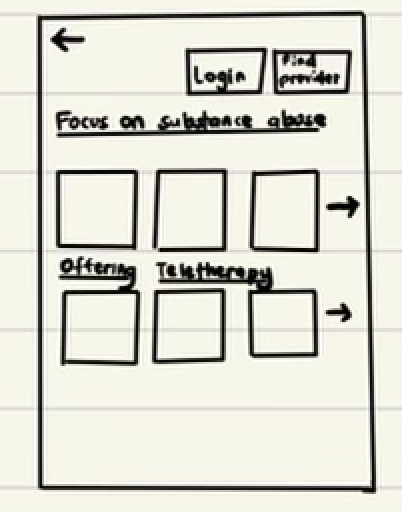 Login
Find
provider
Focus on substance abuse
Offering Teletherapy